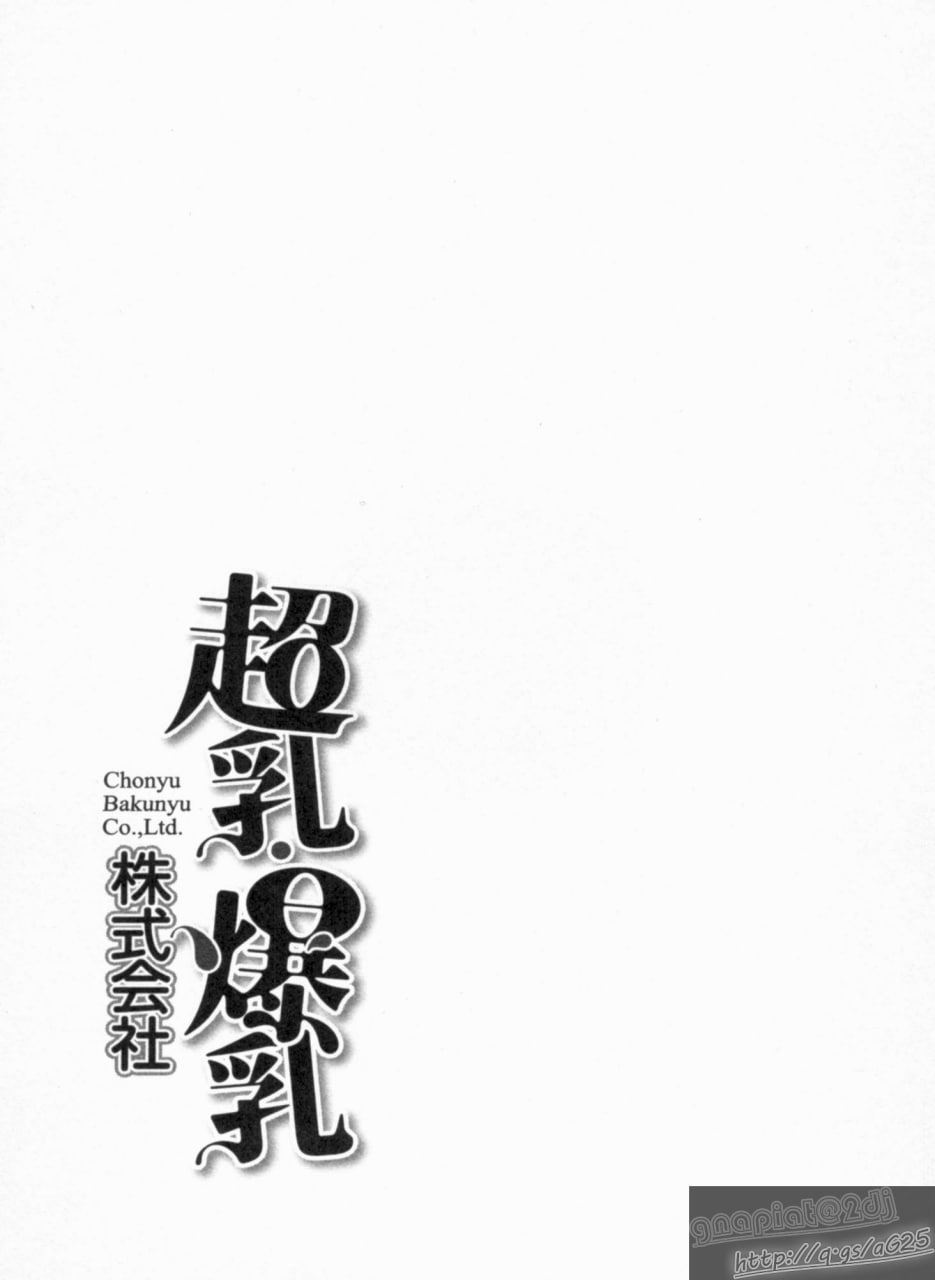 超乳・爆乳
Chonyu
Bakunyu
Co.,Ltd.
株式会社
gnapiat@2dj
http://q.gs/aG25